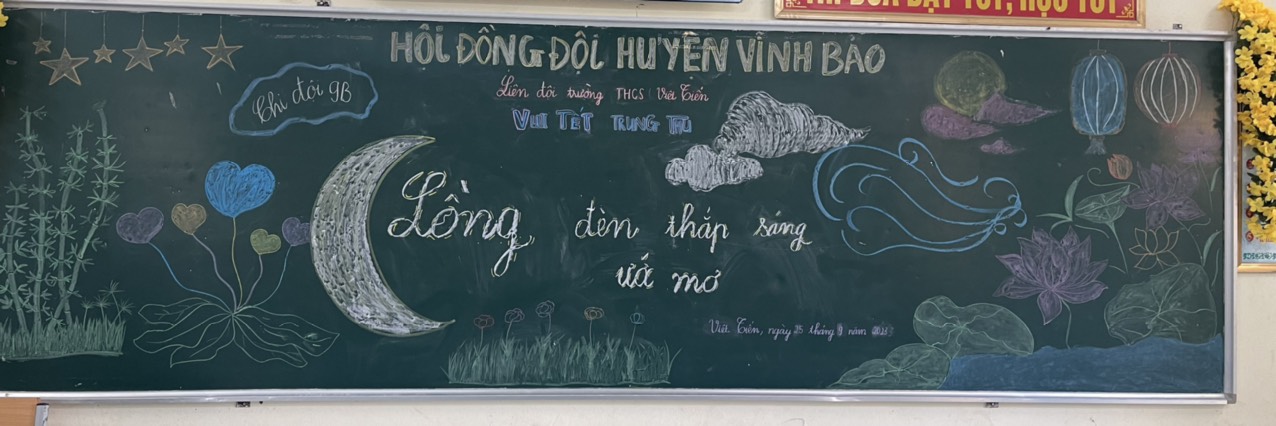 THI ĐUA DẠY TỐT, HỌC TỐT
HỘI ĐỒNG ĐỘI HUYỆN VĨNH BẢO
Liên đội trường THCS Việt Tiến
Chi đội 9B
VUI TẾT TRUNG THU
Lồng đèn thắp sáng
ước mơ
Việt Tiến, ngày 25 tháng 9 năm